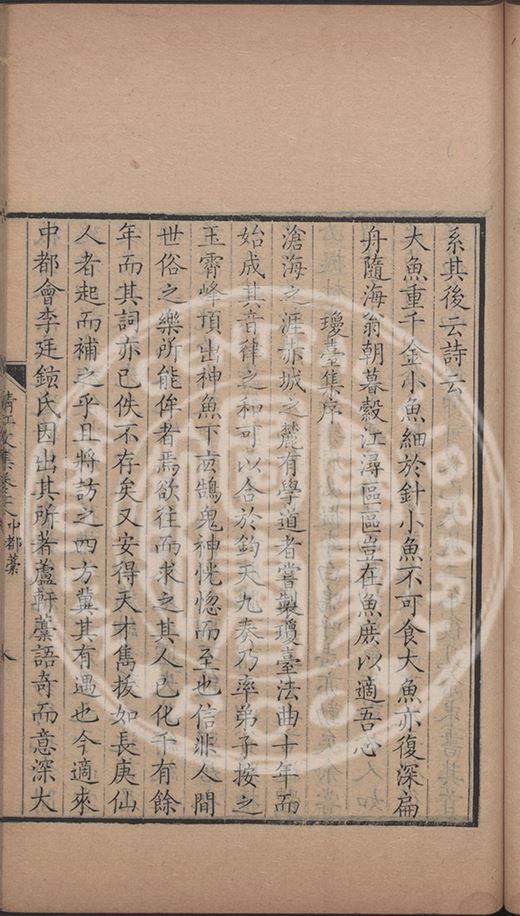 系其後云詩云
大魚重千金小魚細於針小魚不可食大魚亦復深扁
舟隨海翁朝暮縠江潯區區豈在魚庶以適吾心
瓊臺集序
滄海之涯赤城之麓有學道者嘗製瓊臺法曲十年而
始成其音律之和可以合於鈞天九奏乃率弟子按之
玉霄峰頂出神魚下玄鵠鬼神恍惚而至也信非人間
世俗之樂所能侔者焉欲往而求之其人已化千有餘
年而其詞亦已佚不存矣又安得天才雋拔如長庚仙
人者起而補之乎且將訪之四方冀其有遇也今適來
中都會李廷鉉氏因出其所著蘆軒藁語奇而意深大
清江文集卷 中都藁